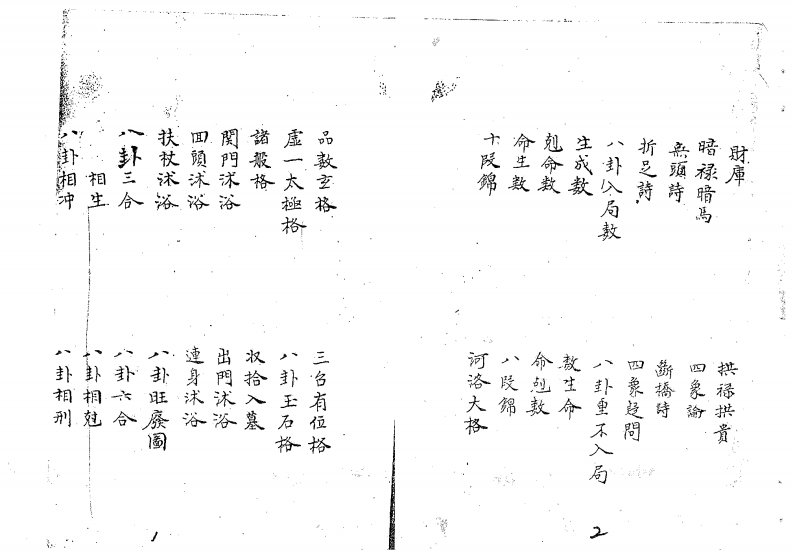 財庫
暗祿暗馬
無頭詩
折足詩
八卦入局數
生成數
剋命數
命生數
十段錦
拱祿拱貴
四象論
斷橋詩
四象疑問
八卦重不入局
數生命
命剋數
八段錦
河洛大格
2
品數玄格
虛一太極格
諸般格
関門沐浴
回頭沐浴
扶杖沐浴
八卦三合
相生
八卦相冲
三台有位格
八卦玉石格
収拾入墓
出門沐浴
連身沐浴
八卦旺廢圖
八卦六合
八卦相尅
八卦相刑
1